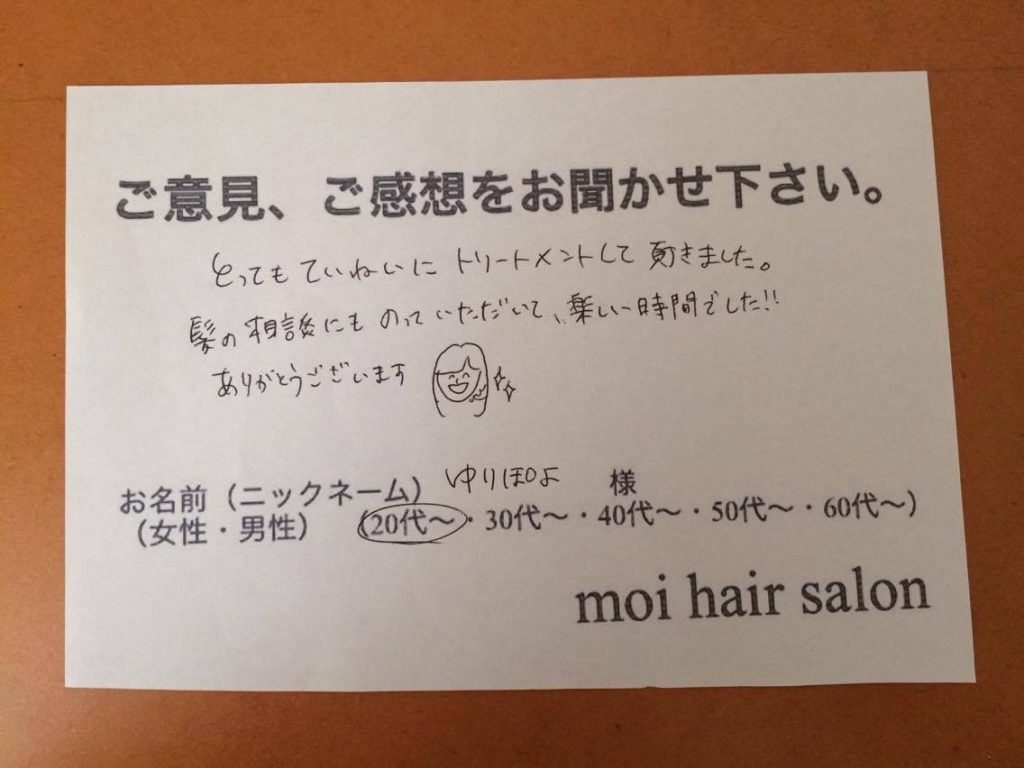 ご意見、ご感想をお聞かせ下さい。
とってもていねいにトリートメントして頂きました。
髪の相談にものっていただいて、楽しい時間でした!!
ありがとうございます
お名前（ニックネーム）ゆりぽよ 様
（女性・男性）（20代〜・30代〜・40代〜・50代〜・60代〜）
moi hair salon